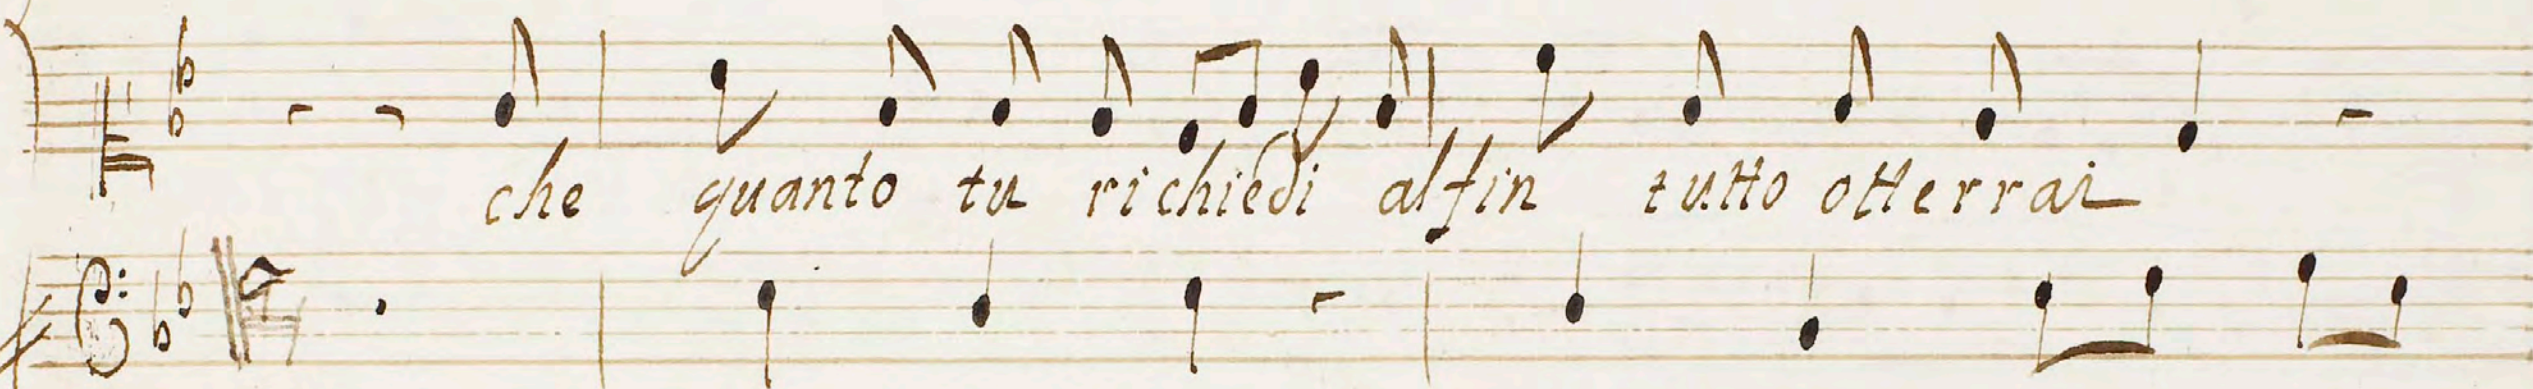 che quanto tu richiedi alfin tutto otterrai